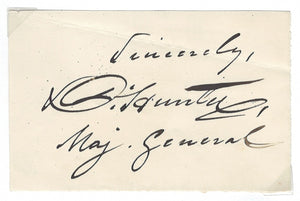 Sincerely,
D. Hunter,
Maj. General